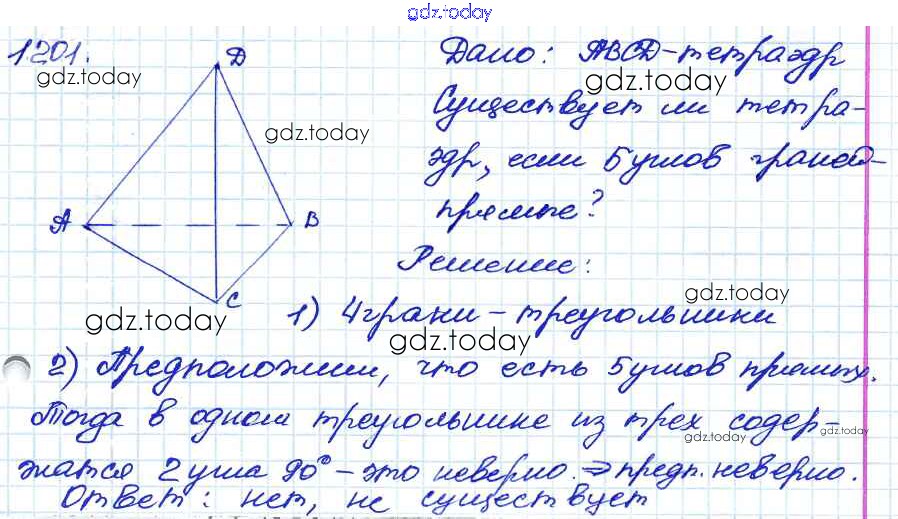 gdz.today
1201.
gdz.today
D
gdz.today
A
B
C
gdz.today
Дано: ABCD-тетраэдр
gdz.today
Существует ли тетра-
эдр, если 5 углов граней-
прямые?
Решение:
gdz.today
1) 4 грани - треугольники
gdz.today
2) Предположим, что есть 5 углов прямых.
Тогда в одном треугольнике из трех содер-
gdz.today
gdz.today
жатся 2 угла 90° - это неверно. ⇒ предп. неверно.
Ответ: нет, не существует